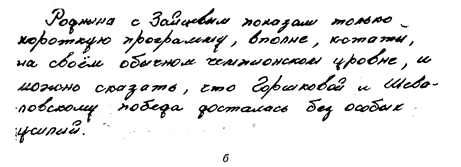 Роднина с Зайцевым показали только
короткую программу, вполне, кстати,
на своём обычном чемпионском уровне, и
можно сказать, что Горшковой и Шева-
ловскому победа досталась без особых
усилий.
б